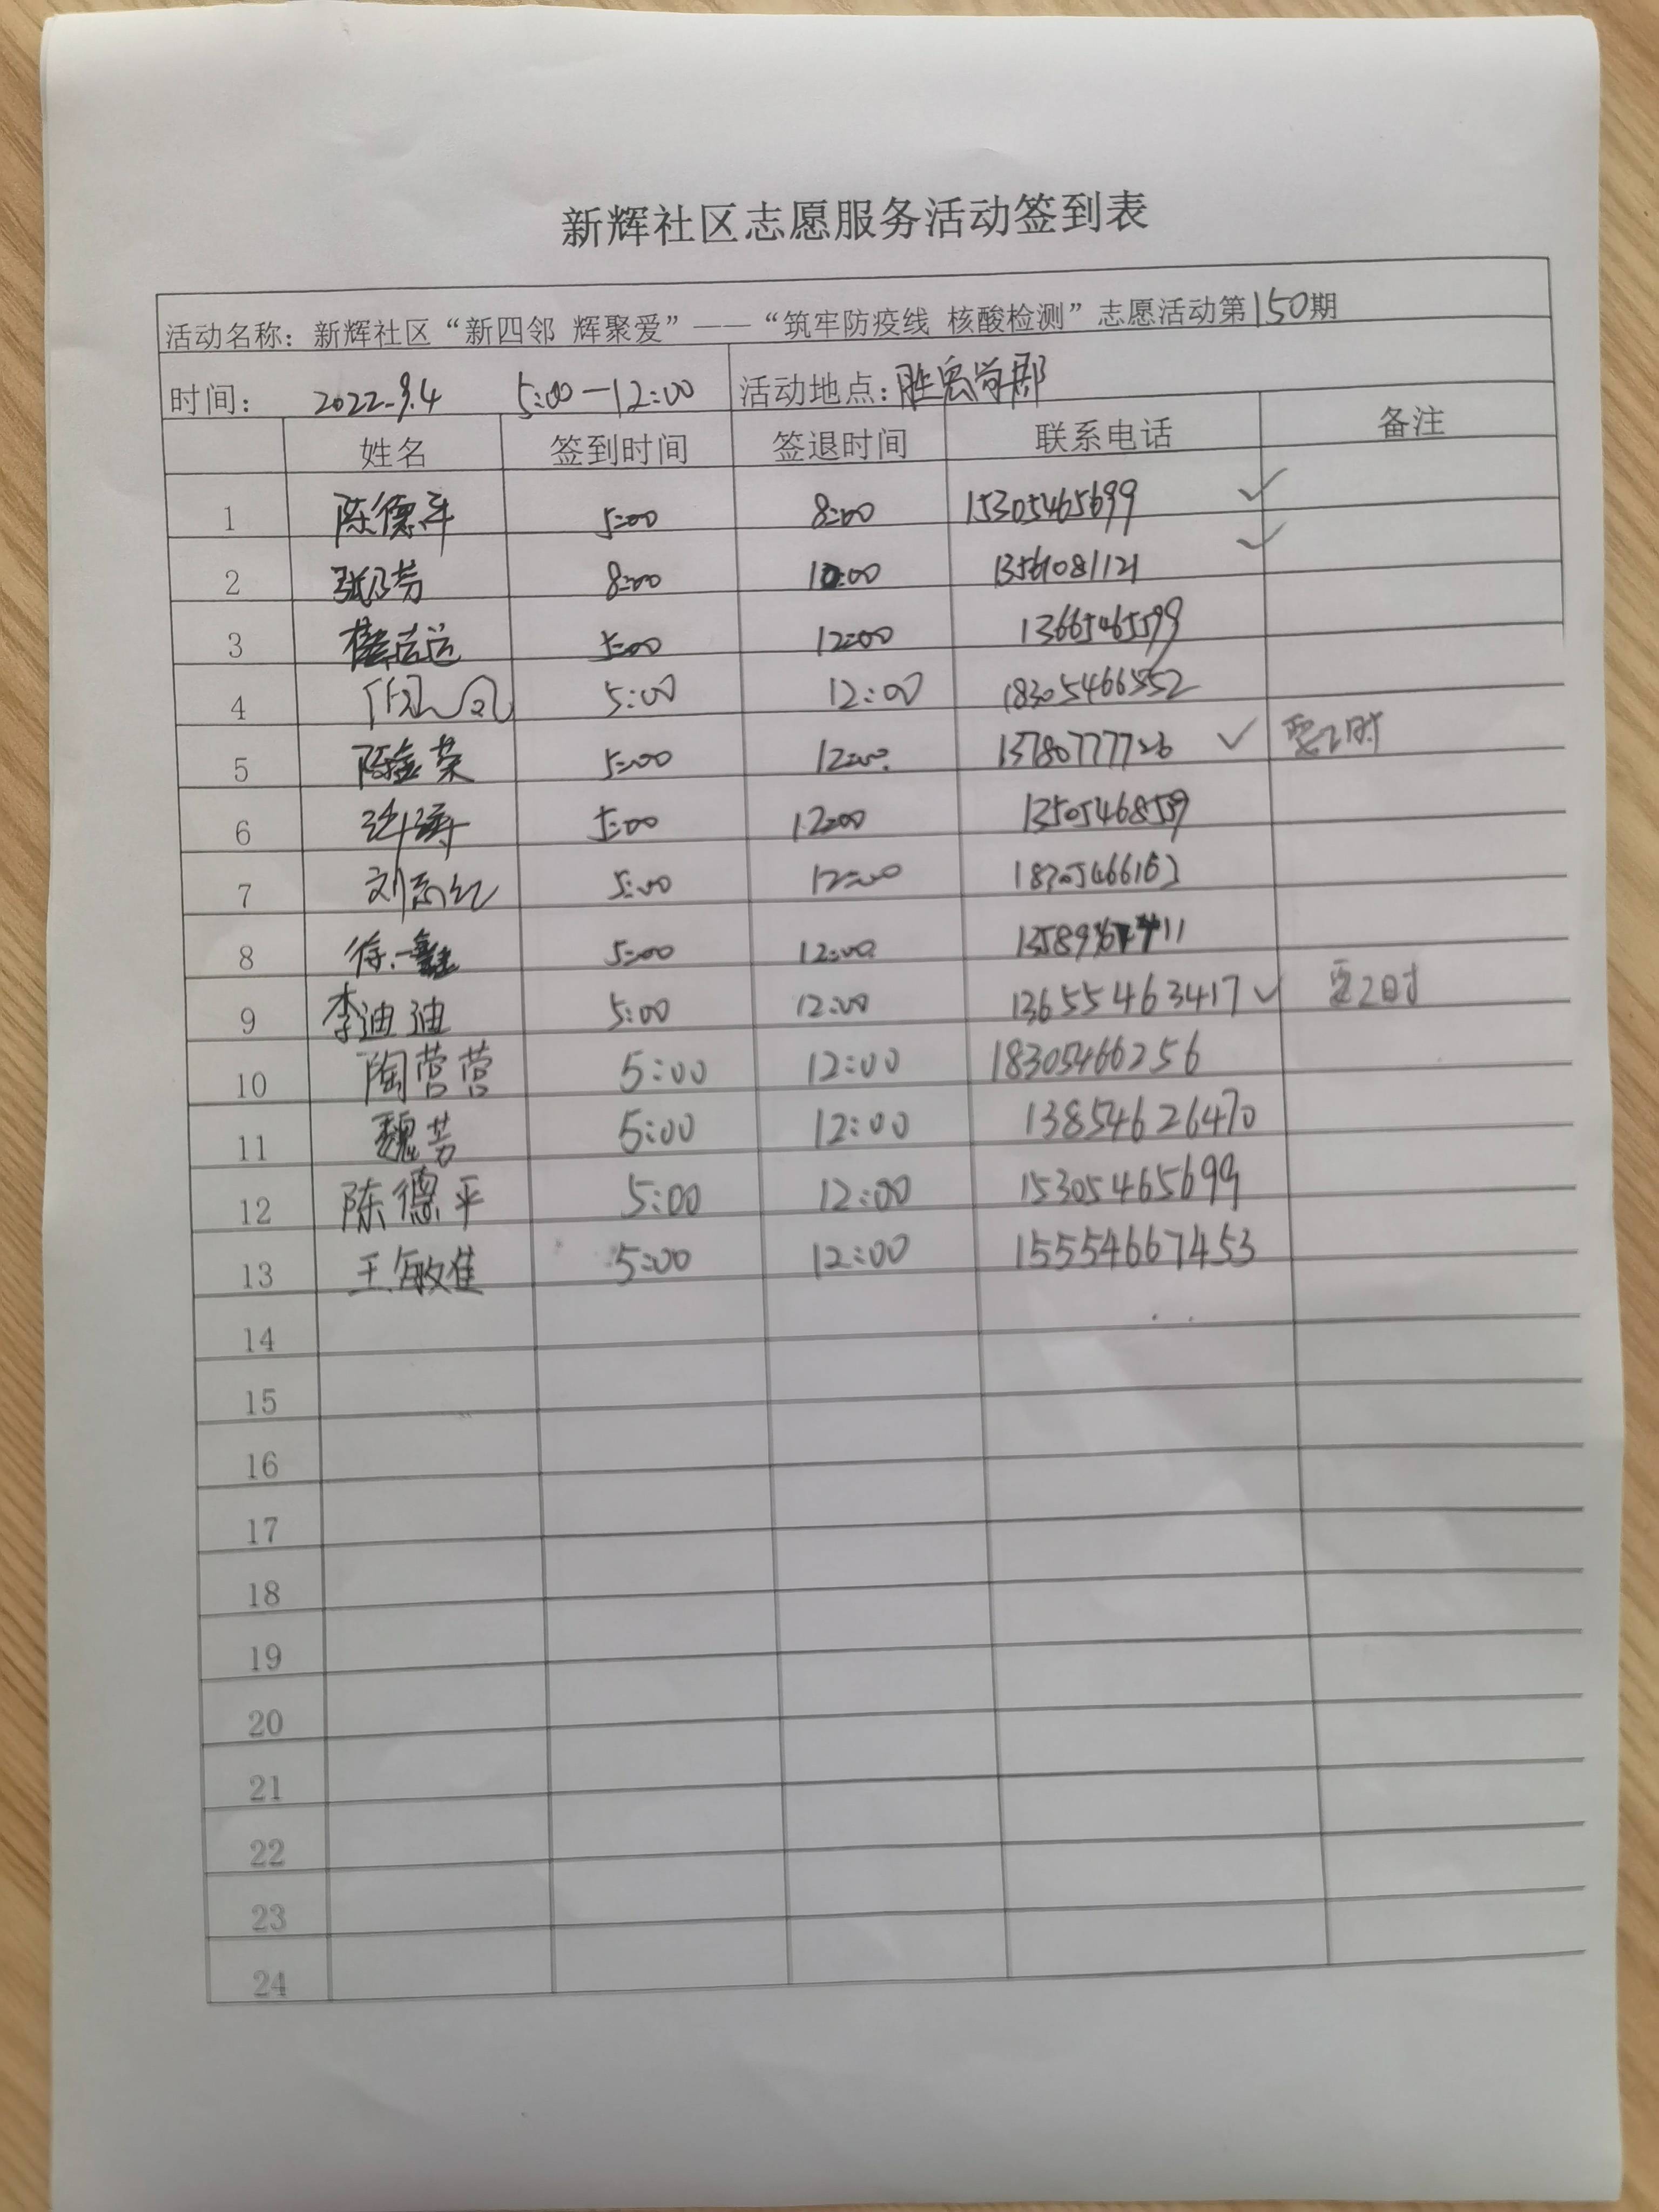 新辉社区志愿服务活动签到表
活动名称：新辉社区“新四邻 辉聚爱”——“筑牢防疫线 核酸检测”志愿活动第150期
时间： 2022.9.4 5:00—12:00 活动地点：胜宏尚郡
姓名 签到时间 签退时间 联系电话 备注
1 陈德平 5:00 8:00 15305465699 ✓
2 张乃芳 8:00 10:00 13561081121 ✓
3 志远 5:00 12:00 13665465599
4 5:00 12:00 18305466552
5 陈金荣 5:00 12:00 13780777726 ✓ 要2时
6 许涛 5:00 12:00 13505468559
7 刘志红 5:00 12:00
8 徐 5:00 12:00
9 李迪迪 5:00 12:00 13655463417 ✓ 要2时
10 陶营营 5:00 12:00 18305466256
11 魏芳 5:00 12:00 13854626470
12 陈德平 5:00 12:00 15305465699
13 王敏佳 5:00 12:00 15554667453
14
15
16
17
18
19
20
21
22
23
24